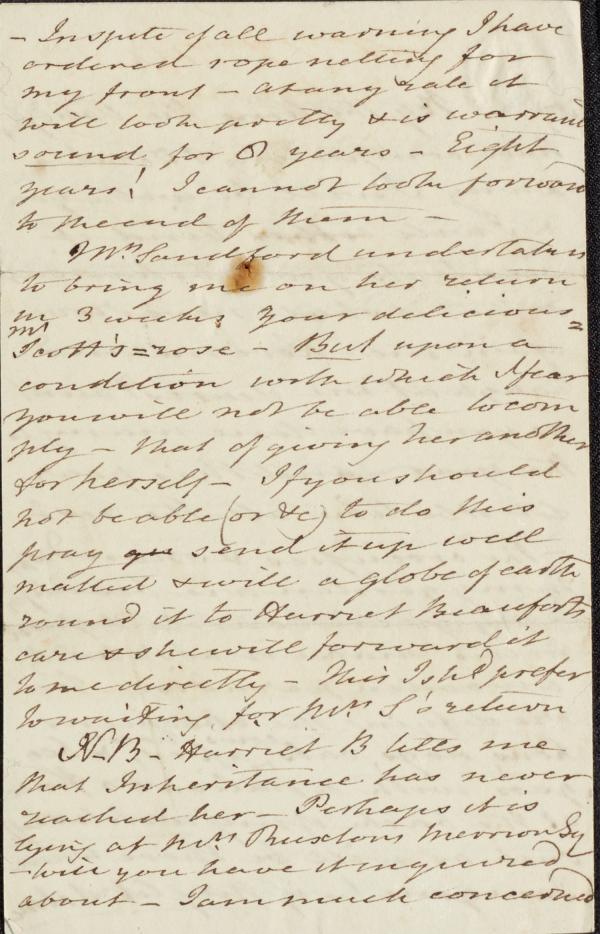 - In spite of all warning I have
ordered rope netting for
my front - at any rate it
will look pretty & is warranted
sound for 8 years - Eight
years! I cannot look forward
to the end of them -
Mrs Sandford undertakes
to bring me on her return
in 3 weeks your delicious=
Mr
Scott's=rose - But upon a
condition with which I fear
you will not be able to com
ply - that of giving her another
for herself - If you should
not be able (or &c) to do this
pray send it up well
matted & with a globe of earth
round it to Harriet Beauforts
care & she will forward it
to me directly - This I shd prefer
to waiting for Mrs S's return
N-B - Harriet B tells me
that Inheritance has never
reached her - Perhaps it is
lying at Mrs Ruxtons Merrion Sq
- will you have it inquired
about - I am much concerned